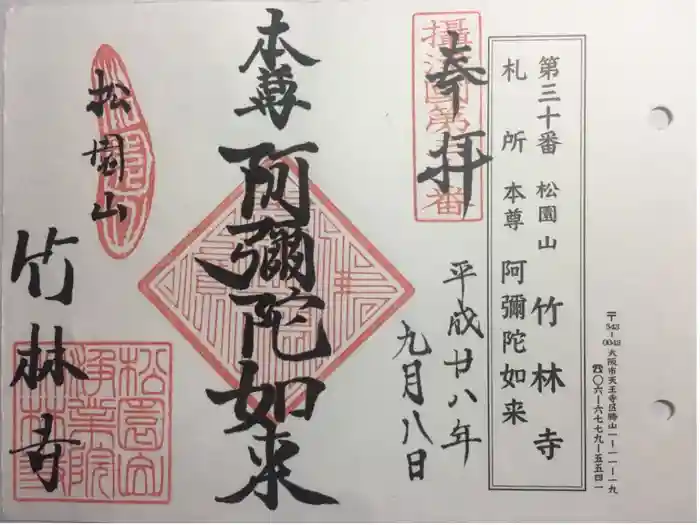 〒543-0043 大阪市天王寺区勝山一-一一-一九
☎〇六-六七七九-五五四一
第三十番 松園山 竹林寺
札所本尊 阿彌陀如来
奉拝
平成廿八年
九月八日
本尊
阿彌陀如来
松園山
竹林寺